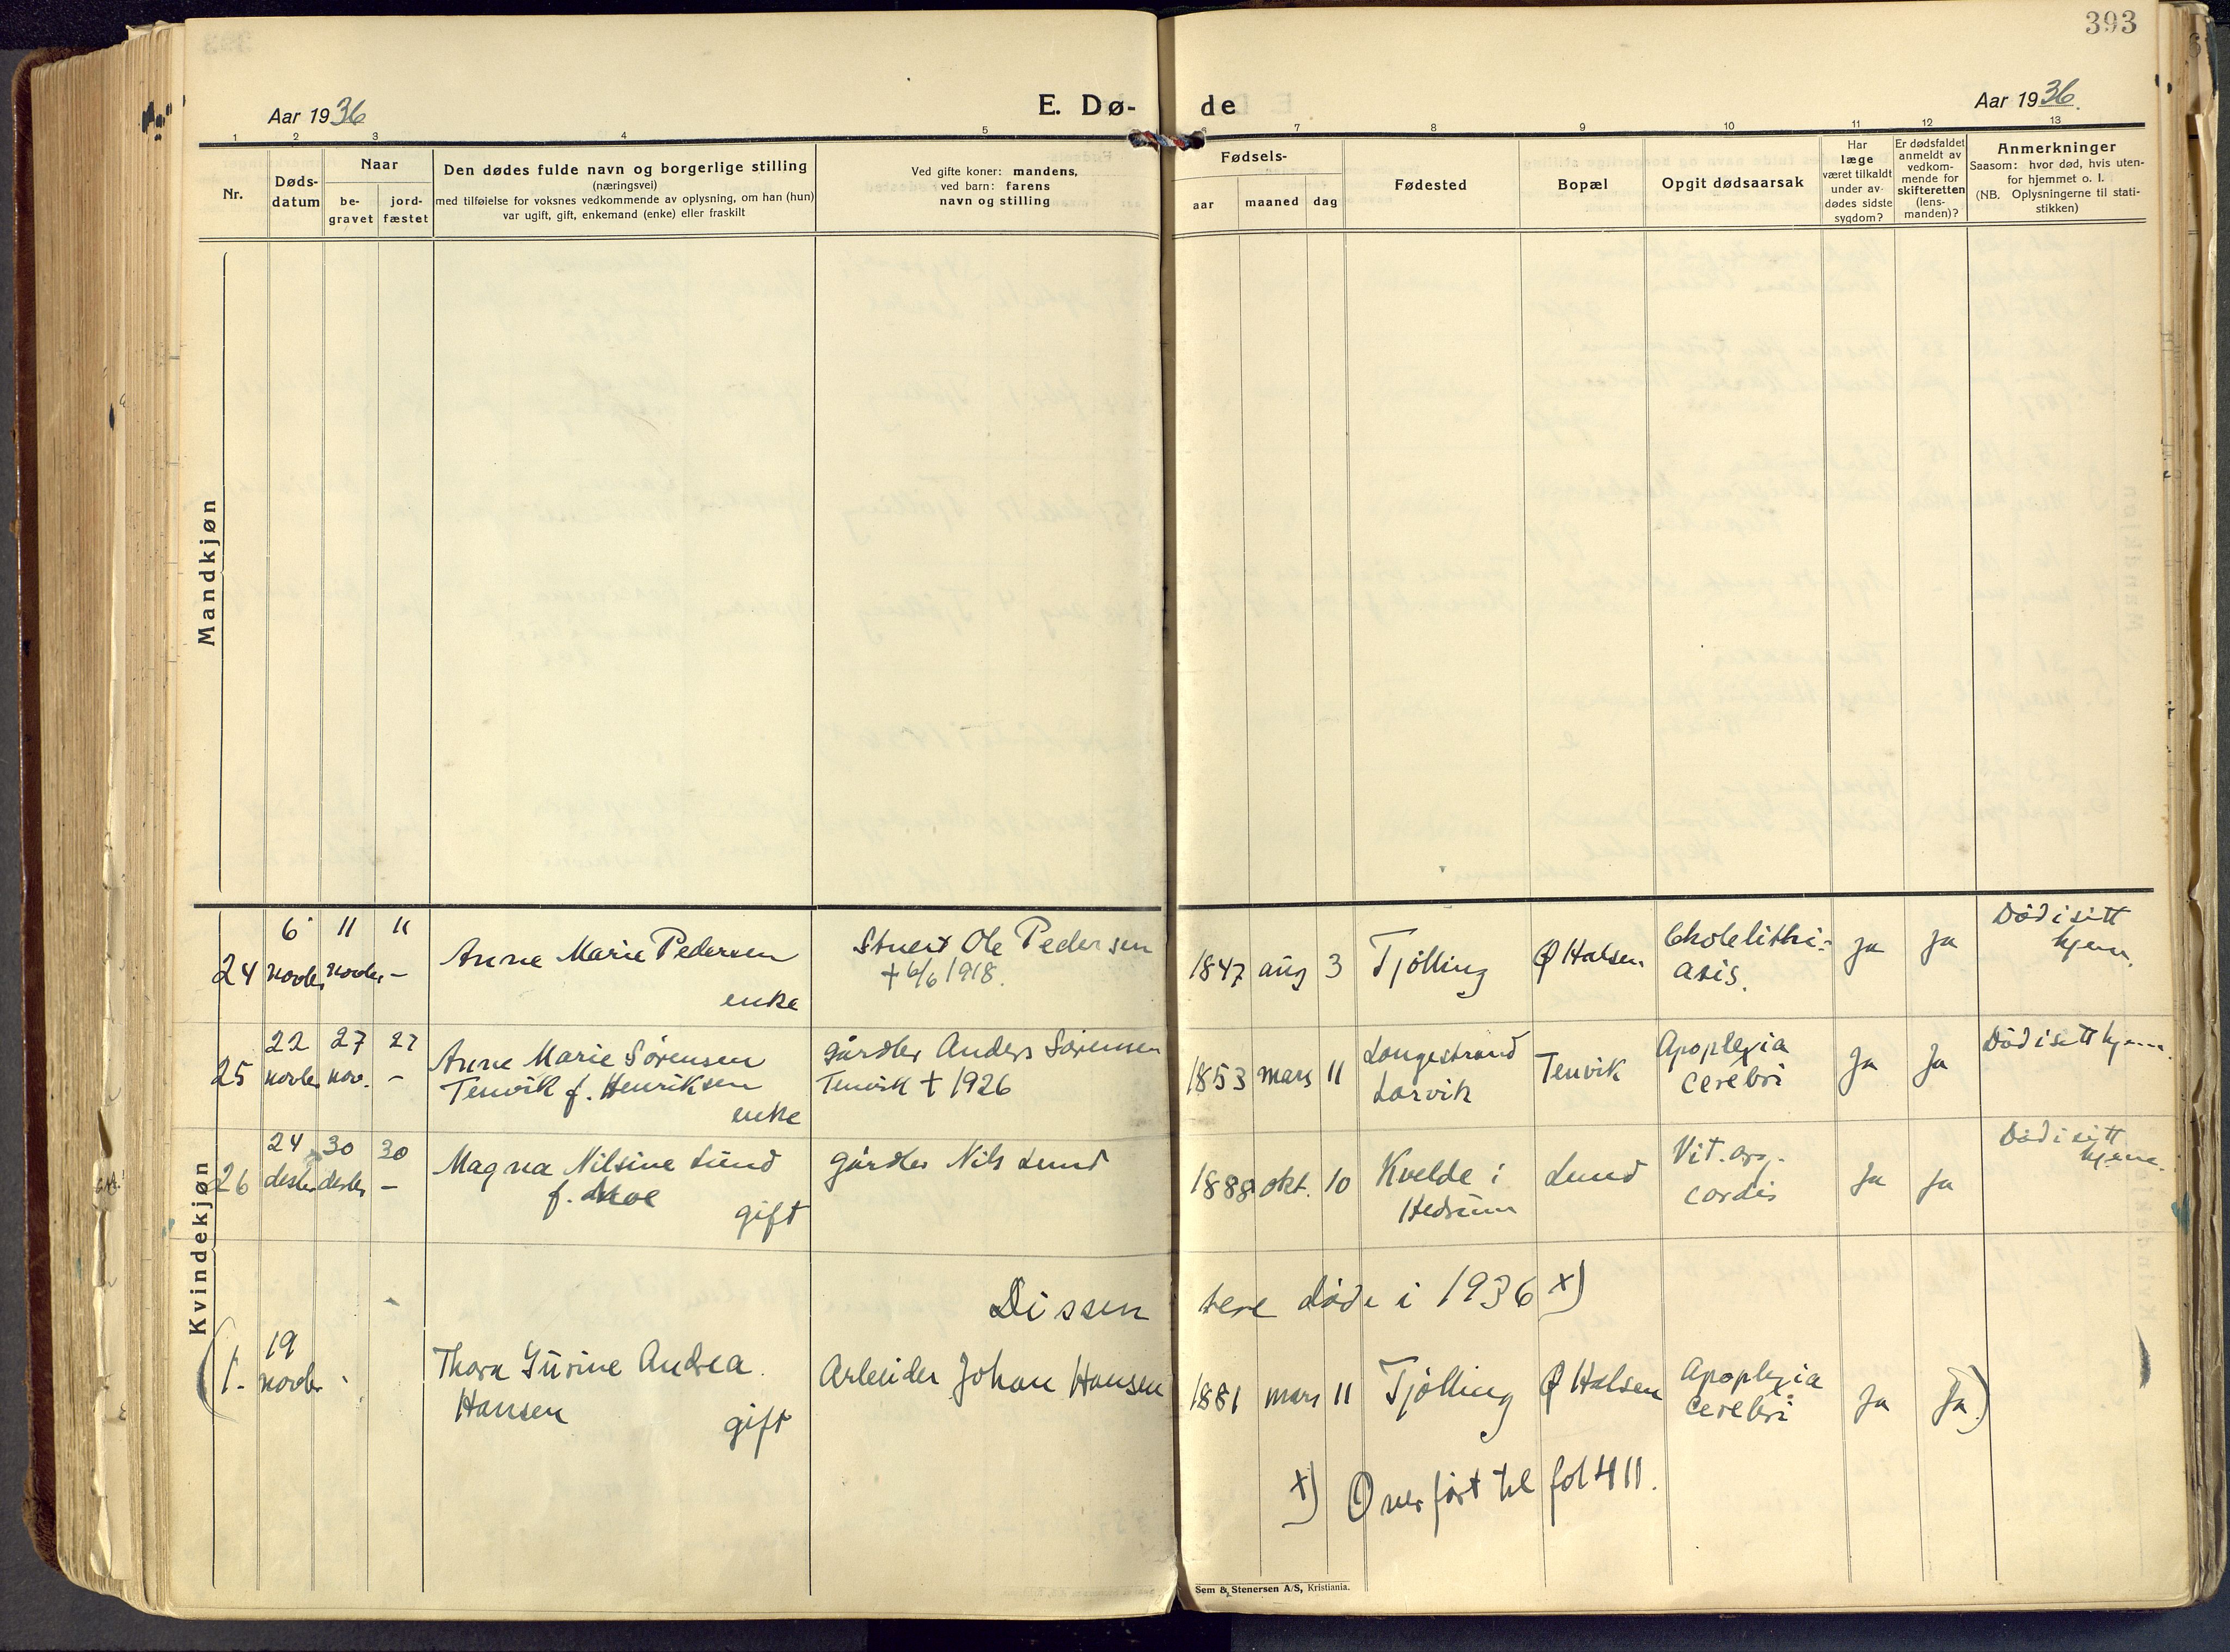 393
Aar 1936
E. Dø-
de
Aar 1936.
1 2 3 4 5 6 7 8 9 10 11 12 13
Nr.
Døds-
datum
Naar
be-
gravet
jord-
fæstet
Den dødes fulde navn og borgerlige stilling
(næringsvei)
med tilføielse for voksnes vedkommende av oplysning, om han (hun)
var ugift, gift, enkemand (enke) eller fraskilt
Ved gifte koner: mandens,
ved barn: farens
navn og stilling
Fødsels-
aar
maaned
dag
Fødested
Bopæl
Opgit dødsaarsak
Har
læge
været tilkaldt
under av-
dødes sidste
sygdom?
Er dødsfaldet
anmeldt av
vedkom-
mende for
skifteretten
(lens-
manden)?
Anmerkninger
Saasom: hvor død, hvis uten-
for hjemmet o. l.
(NB. Oplysningerne til stati-
stikken)
Mandkjøn
Kvindekjøn
24
6
novbr
11
novbr
11
-
Anne Marie Pedersen
enke
Stuert Ole Pedersen
+ 6/6 1918.
1847 aug 3
Tjölling
Ø Halsen
Cholelithi-
asis.
Ja
Ja
Död i sitt
hjem.
25
22
novbr
27
nov.
27
-
Anne Marie Sörensen
Tenvik f. Henriksen
enke
gårdbr Anders Sörensen
Tenvik + 1926
1853 mars 11
Langestrand
Larvik
Tenvik
Apoplexia
cerebri
Ja
Ja
Död i sitt hjem.
26
24
desbr
30
desbr
30
-
Magna Nilsine Lund
f. Moe
gift
gårdbr Nils Lund
1888 okt. 10
Kvelde i
Hedrum
Lund
Vit. org.
cordis
Ja
Ja
Död i sitt
hjem.
Dissen
tere döde i 1936 x)
(1.
19
novbr
Thora Gurine Andrea
Hansen
gift
Arbeider Johan Hansen
1881 mars 11
Tjölling
Ø Halsen
Apoplexia
cerebri
Ja
Ja)
x) Overfört til fol 411.
Sem & Stenersen A/S, Kristiania.